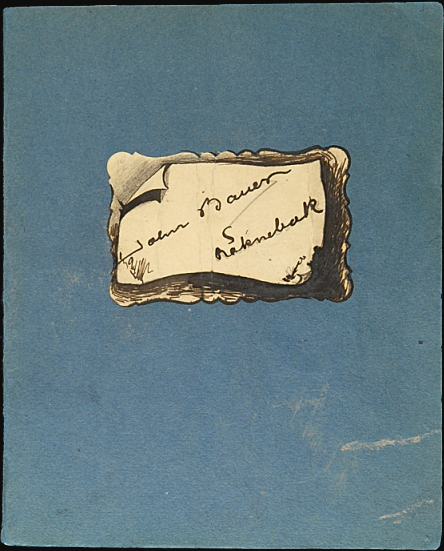 John Bauer
Räknebok